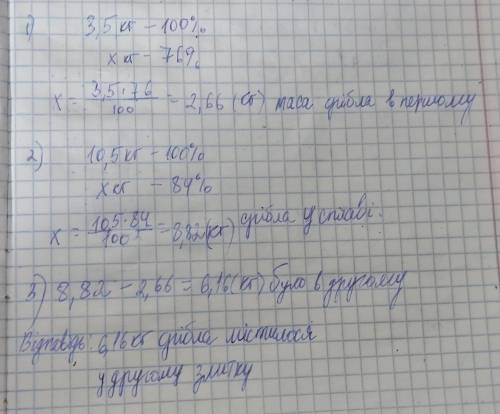 1) 3,5 кг - 100%
x кг - 76%
x = 3,5·76 / 100 = 2,66 (кг) маса срібла в першому
2) 10,5 кг - 100%
x кг - 84%
x = 10,5·84 / 100 = 8,82 (кг) срібла у сплаві.
3) 8,82 - 2,66 = 6,16 (кг) було в другому
Відповідь: 6,16 кг срібла містилося
у другому злитку